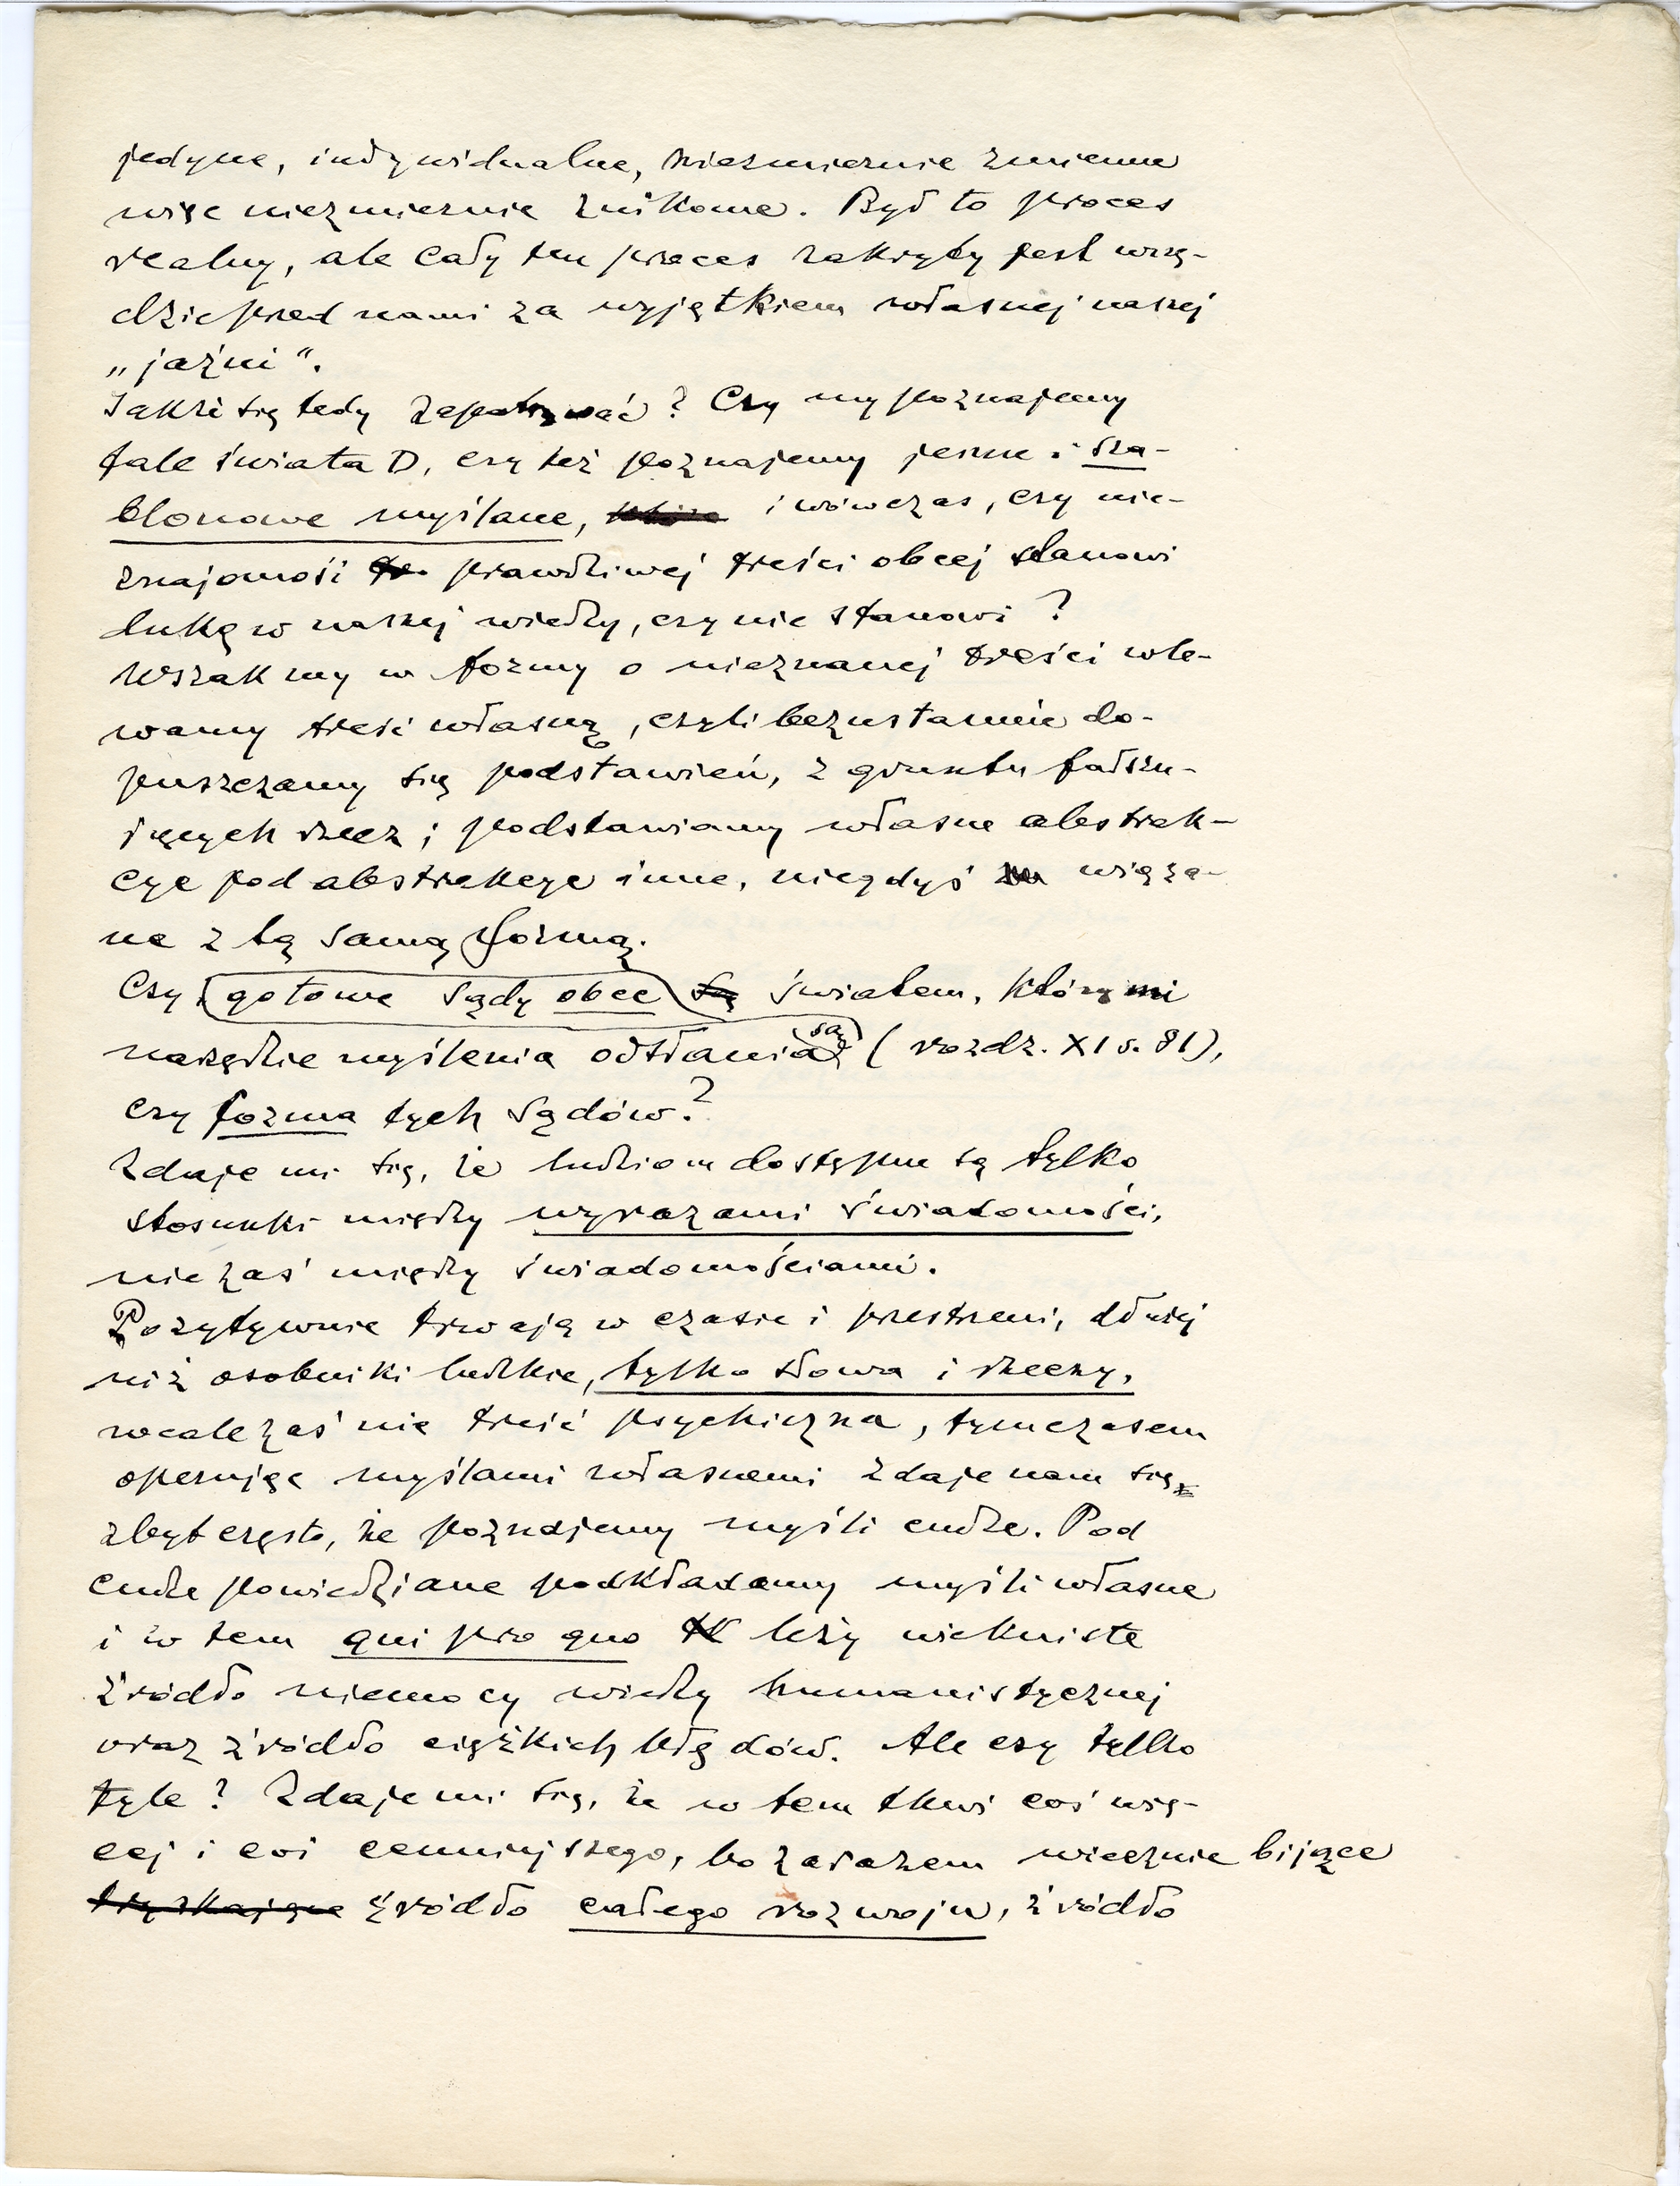 jedyne, indywidualne, niezmiernie zmienne
więc niezmiernie znikome. Był to proces
realny, ale cały ten proces zakryty jest wszę-
dzie przed nami za wyjątkiem własnej naszej
„jaźni“.
Jakże się tedy zapatrywać? Czy my poznajemy
fale świata D, czy też poznajemy jeszcze i sza-
blonowe myślane, i wówczas, czy nie-
znajomość prawdziwej treści obcej stanowi
lukę w naszej wiedzy, czy nie stanowi?
Wszak my w formy o nieznanej treści wle-
wamy treść własną, czyli bezustannie do-
puszczamy się podstawień, z gruntu fałszu-
jących rzecz; podstawiamy własne abstrak-
cye pod abstrakcye inne, niegdyś wiąza-
ne z tą samą formą.
Czy gotowe sądy obce są światem, którymi
narzędzie myślenia odsłania są (rozdz. XI s. 81),
czy forma tych sądów?
Zdaje mi się, że ludziom dostępne są tylko
stosunki między wyrazami świadomości,
nie zaś między świadomościami.
Pozytywnie trwają w czasie i przestrzeni, dłużej
niż osobniki ludzkie, tylko słowa i rzeczy,
wcale zaś nie treść psychiczna, tymczasem
operując myślami własnemi zdaje nam się
zbyt często, że poznajemy myśli cudze. Pod
cudze powiedziane podkładamy myśli własne
i w tem qui pro quo leży wiekuiste
źródło niemocy wiedzy humanistycznej
oraz źródło ciężkich błędów. Ale czy tylko
tyle? Zdaje mi się, że w tem tkwi coś wię-
cej i coś cenniejszego, bo zarazem wiecznie bijące
tryskające źródło całego rozwoju, źródło